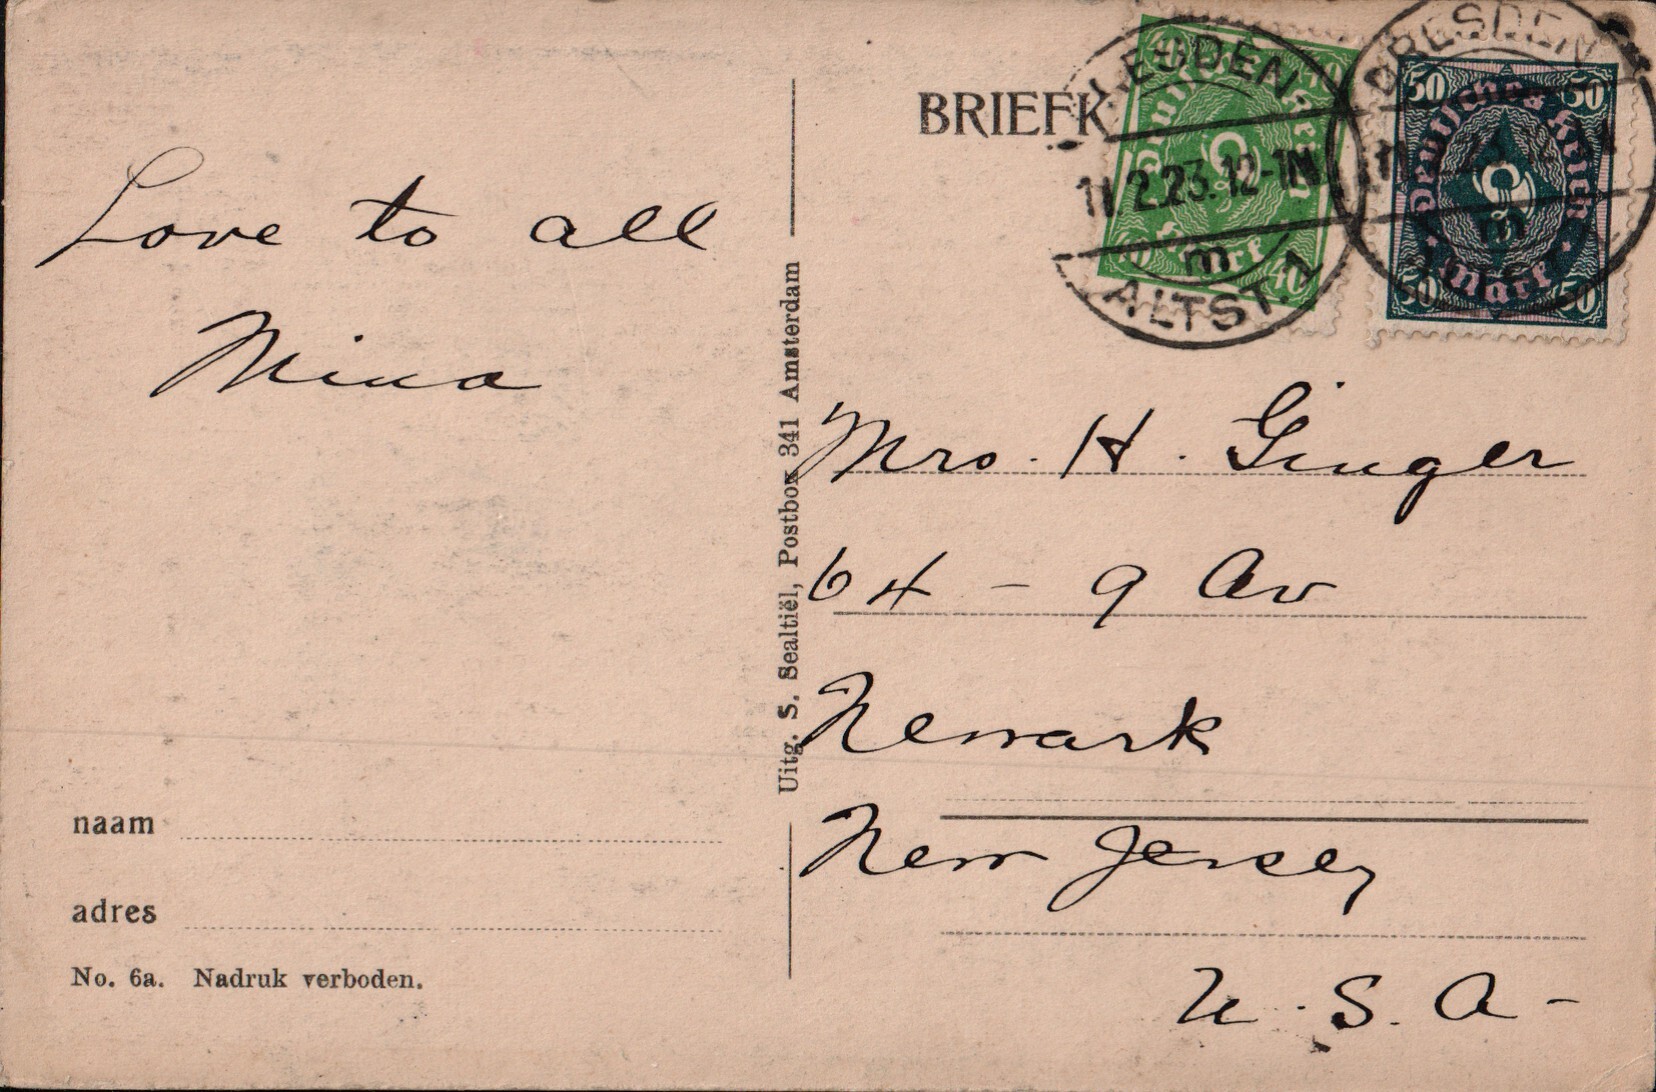 Love to all
Mina
naam
adres
No. 6a. Nadruk verboden.
Uitg. S. Sealtiël, Postbox 341 Amsterdam
BRIEFK
DRESDEN
11.2.23.12-1N
m
ALTST. 1
40
40
40
Deutsches Reich
Mark
DRESDEN
m
50
50
Deutsches Reich
Mark
50
50
Mrs. H. Ginger
64 - 9 Av
Newark
New Jersey
U.S.A-